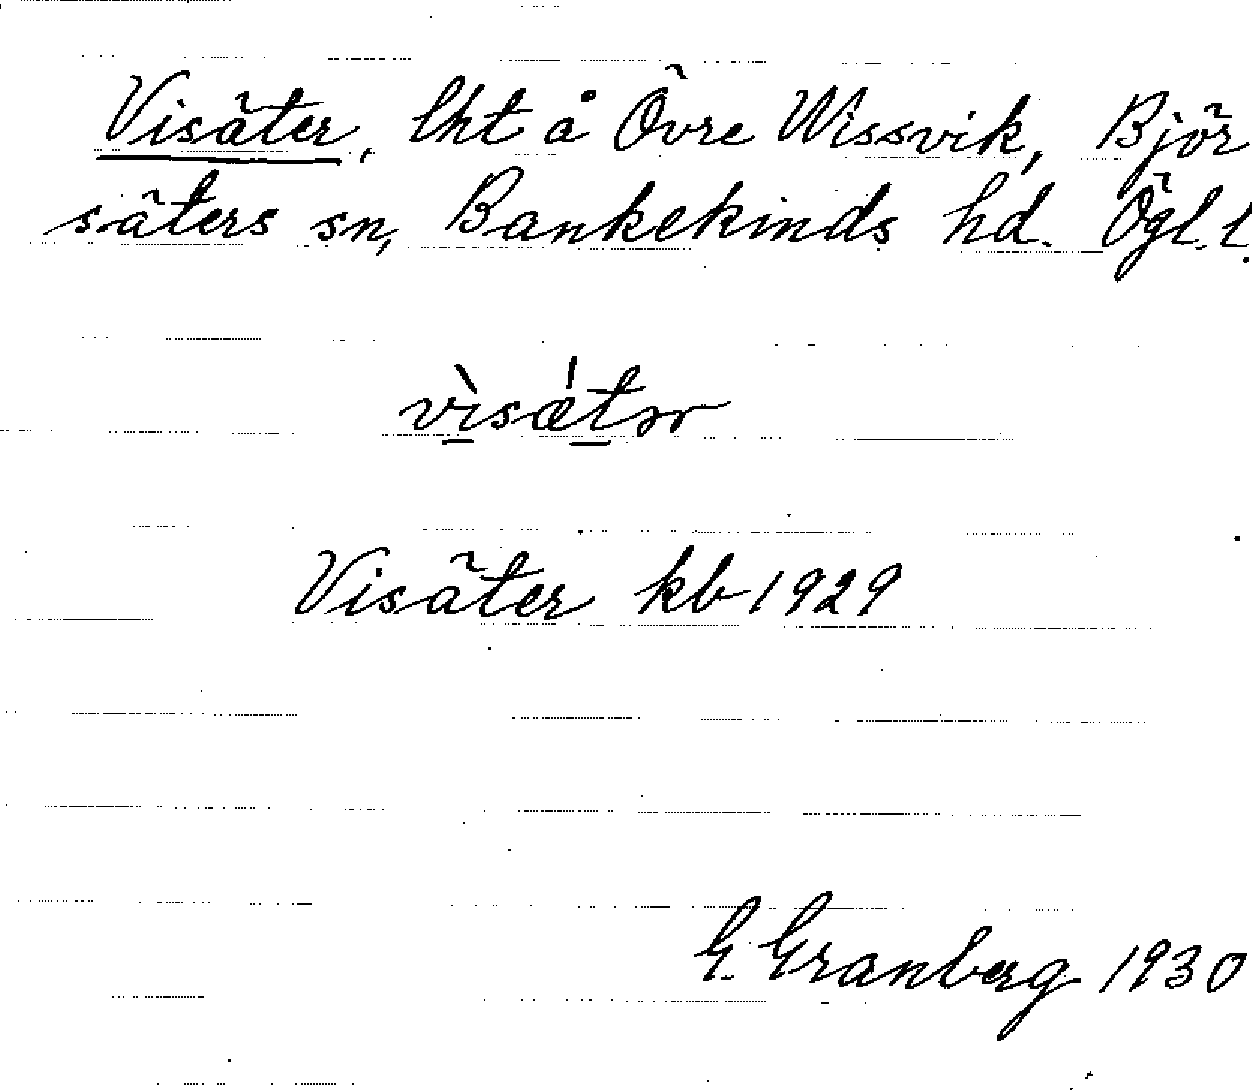 Visäter, lht å Övre Wissvik, Björ
säters sn, Bankekinds hd. Ögl. l.
vìsǽtər
Visäter kb 1929
G. Granberg 1930